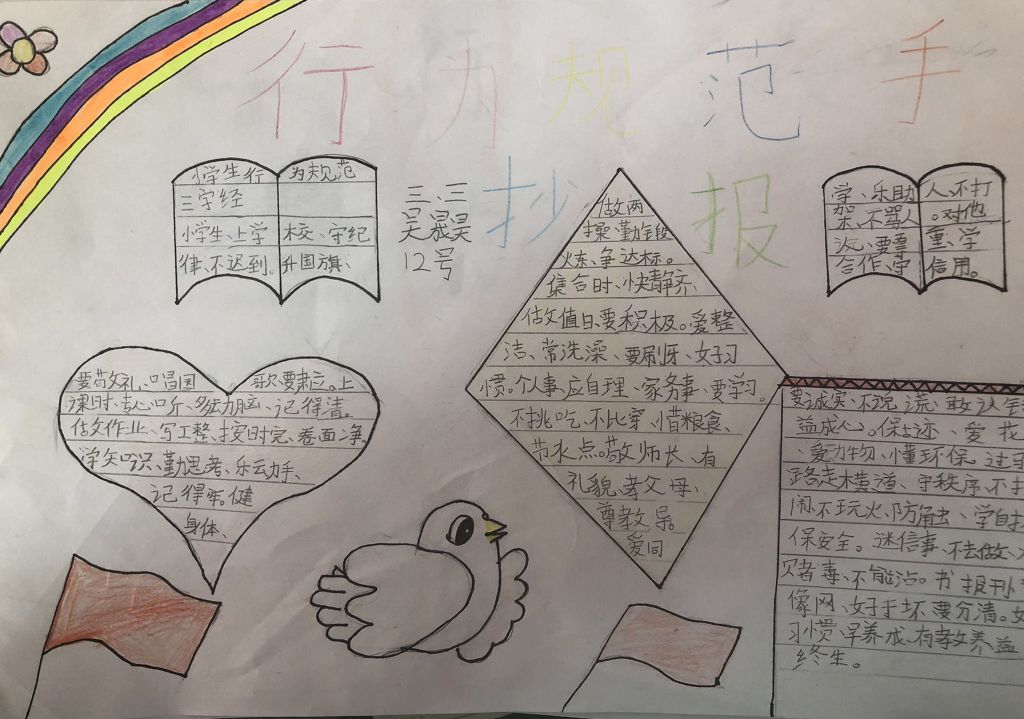 行为规范手
抄报
小学生行为规范
三字经
小学生、上学校、守纪
律、不迟到。升国旗、
要敬礼、唱国歌、要肃立。上
课时、专心听、多动脑、记得清。
做作业、写工整、按时完、卷面净。
学知识、勤思考、乐动手、
记得牢。健
身体、
三、三
吴晟昊
12号
做两
操、勤锻
炼、争达标。
集合时、快静齐、
做值日、要积极。爱整
洁、常洗澡、要刷牙、好习
惯。个人事、应自理、家务事、要学习。
不挑吃、不比穿、惜粮食、
节水点。敬师长、有
礼貌、孝父母、
尊教导。
爱同
学、乐助人、不打
架、不骂人。对他
人、要尊重、学
合作、守信用。
要诚实、不说谎、敢认
益成心。保古迹、爱花
、爱动物、懂环保。过
路走横道、守秩序、不
闹、不玩火、防触电、学自
保安全。迷信事、不去做、
毒、不能沾。书报刊
像网、好于坏要分清。
习惯、早养成、有教养益
终生。